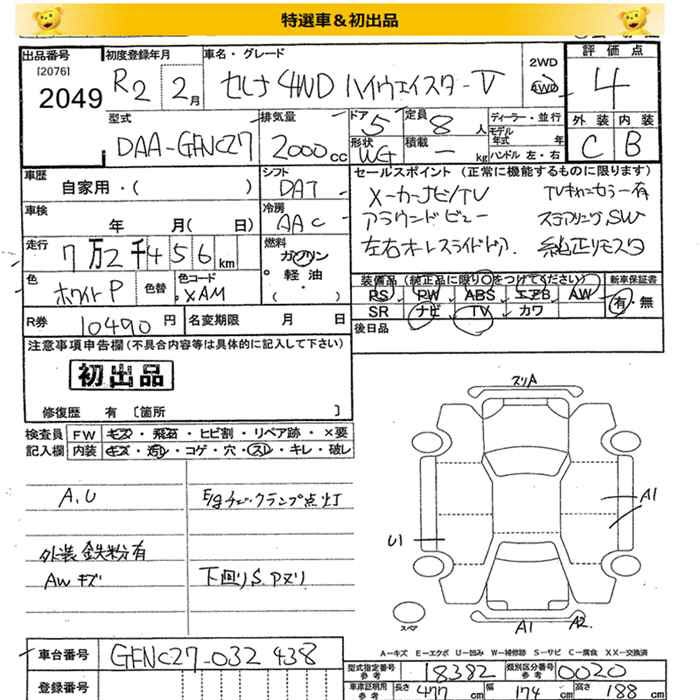 特選車&初出品
出品番号
[2076]
2049
初度登録年月
R2 2月
車名・グレード
セレナ 4WD ハイウェイスターV
2WD
4WD
評価点
4
外装 内装
C B
型式
DAA-GFNC27
排気量
2000cc
ドア
5
定員
8人
形状
WG
積載
- kg
ディーラー・並行
モデル年式 年
ハンドル 左・右
車歴
自家用・( )
シフト
DAT
車検
年 月( 日)
冷房
AAC
走行
7万2千456km
燃料
ガソリン
軽油
( )
色
ホワイトP
色替
色コード
XAM
R券
10490円
名変期限 月 日
セールスポイント (正常に機能するものに限ります)
メーカーナビ/TV TVキャンセラー有
アラウンドビュー ステアリングSW
左右オートスライドドア. 純正リモスタ
装備品(純正品に限り○をつけてください)
新車保証書
PS PW ABS エアB AW
有・無
SR ナビ TV カワ
後日品
注意事項申告欄(不具合内容等は具体的に記入して下さい)
初出品
修復歴 有 [箇所 ]
検査員記入欄
FW キズ・飛石・ヒビ割・リペア跡・×要
内装 キズ・汚レ・コゲ・穴・スレ・キレ・破レ
A.U
E/gチェックランプ点灯
外装鉄粉有
AWキズ
下廻りS.Pヌリ
スリA
A1
U1
スペア
A1 A2
A-キズ E-エクボ U-凹み W-補修跡 S-サビ C-腐食 XX-交換済
車台番号
GFNC27-032438
登録番号
型式指定番号
参考
18382
類別区分番号
参考
0020
車庫証明用
参考
長さ
477cm
幅
174cm
高さ
188cm